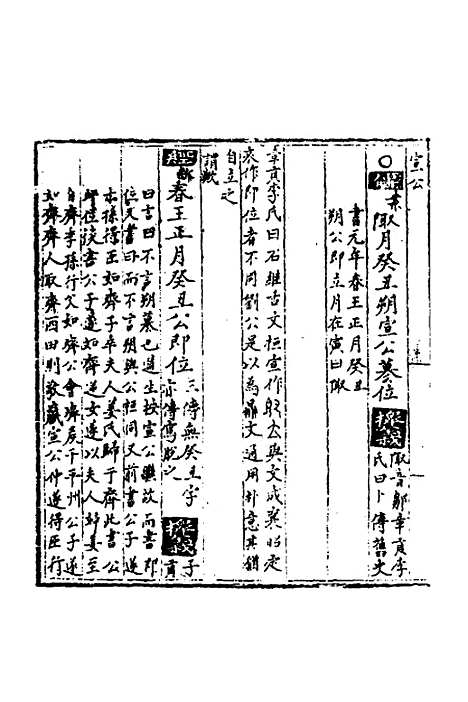 宣公
○經 陬月癸丑朔宣公墓位 探義 陬音鄒章貢李
氏曰卜傳舊史
書元年春王正月癸丑
朔公即立月在寅曰陬
章貢李氏曰石雖古文桓宣作 與文成襄昭定
哀作即位者不同劉公是以為鼎文通用卦意其僣
自立之
謂歟
經 春王正月癸丑公即位 三傳無癸丑字
亦傳寫脫之 探義 子
貢
曰言曰不言朔墓也遺生按宣公繼故而書即
位又書曰而不言朔與公桓同又前書公子遂
叔孫得臣如齊子卒夫人姜氏歸于齊此書公
即位後書公子遂如齊逆女遂以夫人婦姜至
自齊季孫行父如齊公會齊矦于平州公子遂
如齊齊人取濟西田則 宣公仲遂得臣行